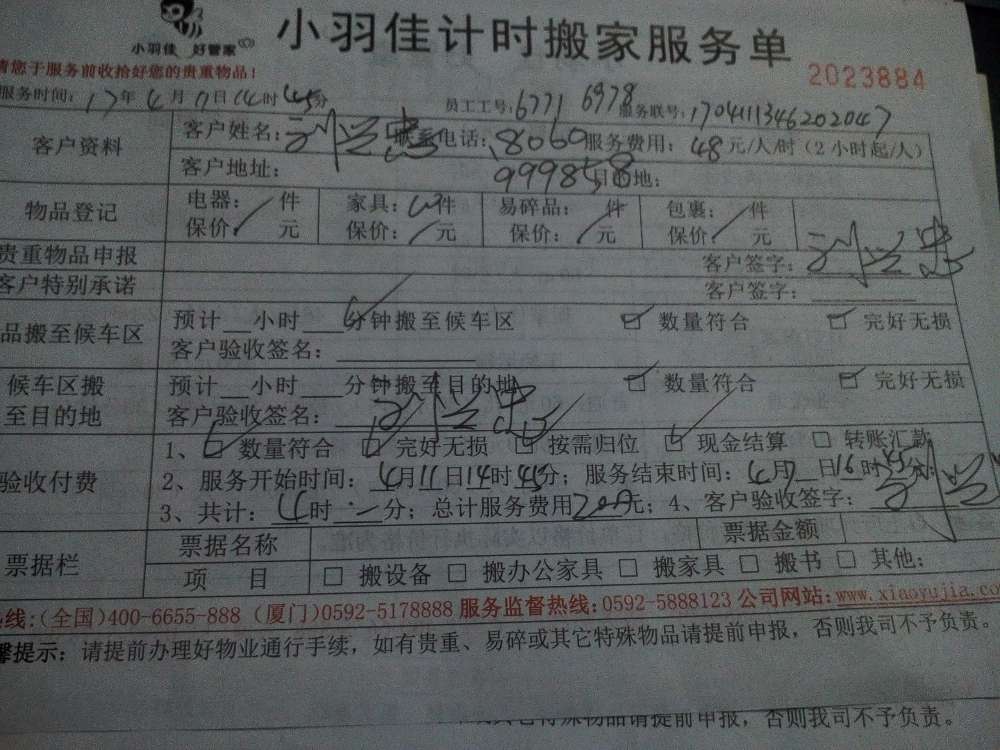 小羽佳 好管家
小羽佳计时搬家服务单
请您于服务前收拾好您的贵重物品!
2023884
服务时间:17年4月11日14时45分 员工工号:6771 6978 服务联号:1704111346202047
客户资料 客户姓名: 联系电话: 18060 服务费用: 48元/人/时(2小时起/人)
客户地址: 999858 目的地:
物品登记 电器: 件 家具: 件 易碎品: 件 包裹: 件
保价: 元 保价: 元 保价: 元 保价: 元
贵重物品申报 客户签字:
客户特别承诺 客户签字:
品搬至候车区 预计__小时__分钟搬至候车区 ☑ 数量符合 ☑ 完好无损
客户验收签名:
候车区搬至目的地 预计__小时__分钟搬至目的地 ☑ 数量符合 ☑ 完好无损
客户验收签名:
验收付费 1、☑ 数量符合 ☑ 完好无损 ☑ 按需归位 ☑ 现金结算 □ 转账汇款
2、服务开始时间: 4月11日14时45分; 服务结束时间: 4月 日16时45分;
3、共计: 4时 分; 总计服务费用200元; 4、客户验收签字:
票据栏 票据名称 票据金额
项 目 □ 搬设备 □ 搬办公家具 □ 搬家具 □ 搬书 □ 其他:
热线:(全国)400-6655-888 (厦门)0592-5178888 服务监督热线:0592-5888123 公司网站:www.xiaoyujia.co
馨提示: 请提前办理好物业通行手续, 如有贵重、易碎或其它特殊物品请提前申报, 否则我司不予负责。
特殊物品请提前申报, 否则我司不予负责。